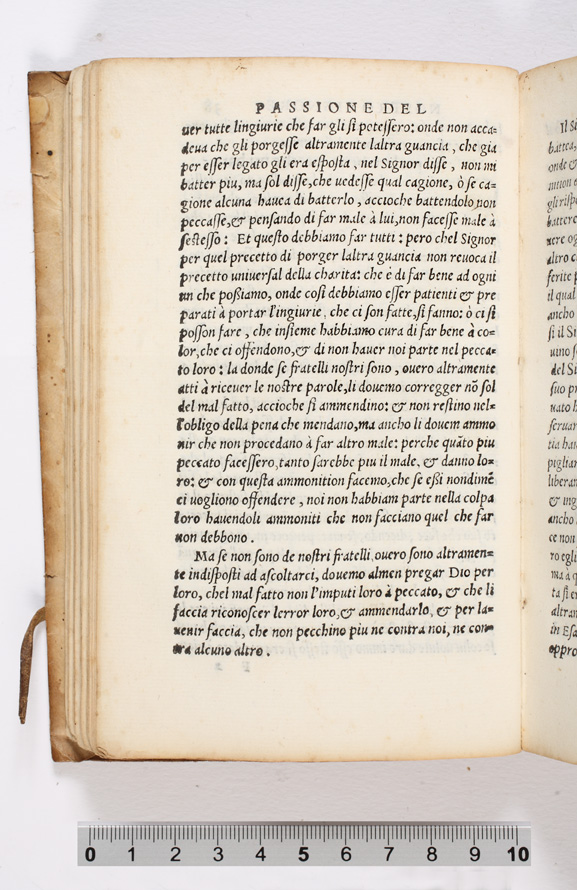 PASSIONE DEL
uer tutte lingiurie che far gli si potessero: onde non acca-
deua che gli porgesse altramente laltra guancia, che gia
per esser legato gli era esposta, nel Signor disse, non mi
batter piu, ma sol disse, che uedesse qual cagione, ò se ca-
gione alcuna hauea di batterlo, accioche battendolo non
peccasse, & pensando di far male à lui, non facesse male à
sestesso: Et questo debbiamo far tutti: pero chel Signor
per quel precetto di porger laltra guancia non reuoca il
precetto uniuersal della charita: che è di far bene ad ogni
un che possiamo, onde cosi debbiamo esser patienti & pre
parati à portar l'ingiurie, che ci son fatte, si fanno: ò ci si
posson fare, che insieme habbiamo cura di far bene à co-
lor, che ci offendono, & di non hauer noi parte nel pecca-
to loro: la donde se fratelli nostri sono, ouero altramente
atti à riceuer le nostre parole, li douemo corregger nõ sol
del mal fatto, accioche si ammendino: & non restino nel-
l'obligo della pena che mendano, ma ancho li douem ammo
nir che non procedano à far altro male: perche quãto piu
peccato facessero, tanto sarebbe piu il male, & danno lo-
ro: & con questa ammonition facemo, che se essi nondimẽ
ci uogliono offendere, noi non habbiam parte nella colpa
loro hauendoli ammoniti che non facciano quel che far
non debbono.
Ma se non sono de nostri fratelli, ouero sono altramen-
te indisposti ad ascoltarci, douemo almen pregar Dio per
loro, chel mal fatto non l'imputi loro à peccato, & che li
faccia riconoscer lerror loro, & ammendarlo, & per la-
uenir faccia, che non pecchino piu ne contra noi, ne con-
tra alcuno altro.
Il Si
battea,
onde &
gli risp
battere
uere og
altro c
ferite p
il qual
ancho
si il Si
uino s
del Si
suo pr
uato h
seruar
tia hau
pigliar
liberar
& ing
ancho
ce non
ro egli
ma à q
ta si er
altran
in Esa
oppro
0 1 2 3 4 5 6 7 8 9 10